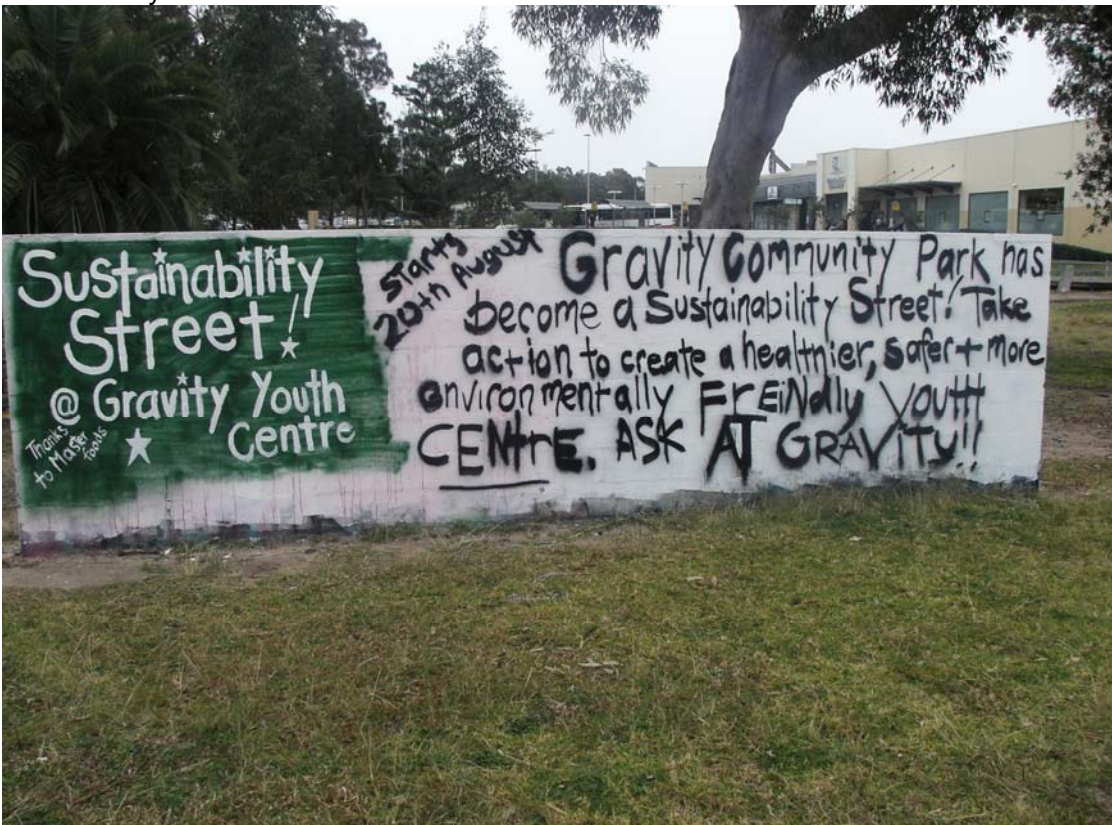 Sustainability
Street!!
@ Gravity Youth
Centre
Thanks
to Master
foods
Starts
20th August
Gravity Community Park has
become a Sustainability Street! Take
action to create a healtnier, safer + more
environmentally FrEiNdly Youth
CENtrE. ASK AT GRAVITY!!